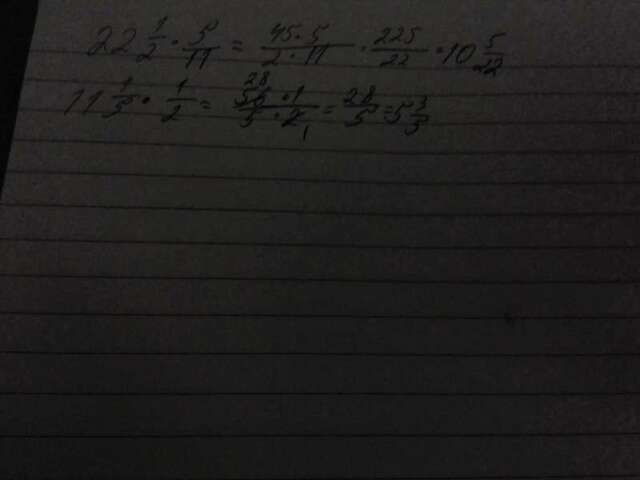 22 1/2 · 5/11 = 45·5/2·11 · 225/22 · 10 5/22
11 1/5 · 1/2 = 28 56·1/5·2 1 = 28/5 = 5 3/5